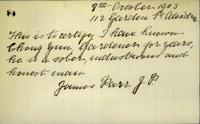 8th October 1903
112 Garden St Adelaide
This is to certify I have known
Chong Yun Gardener for years,
he is a sober, industrious and
honest man
James Parr J.P.